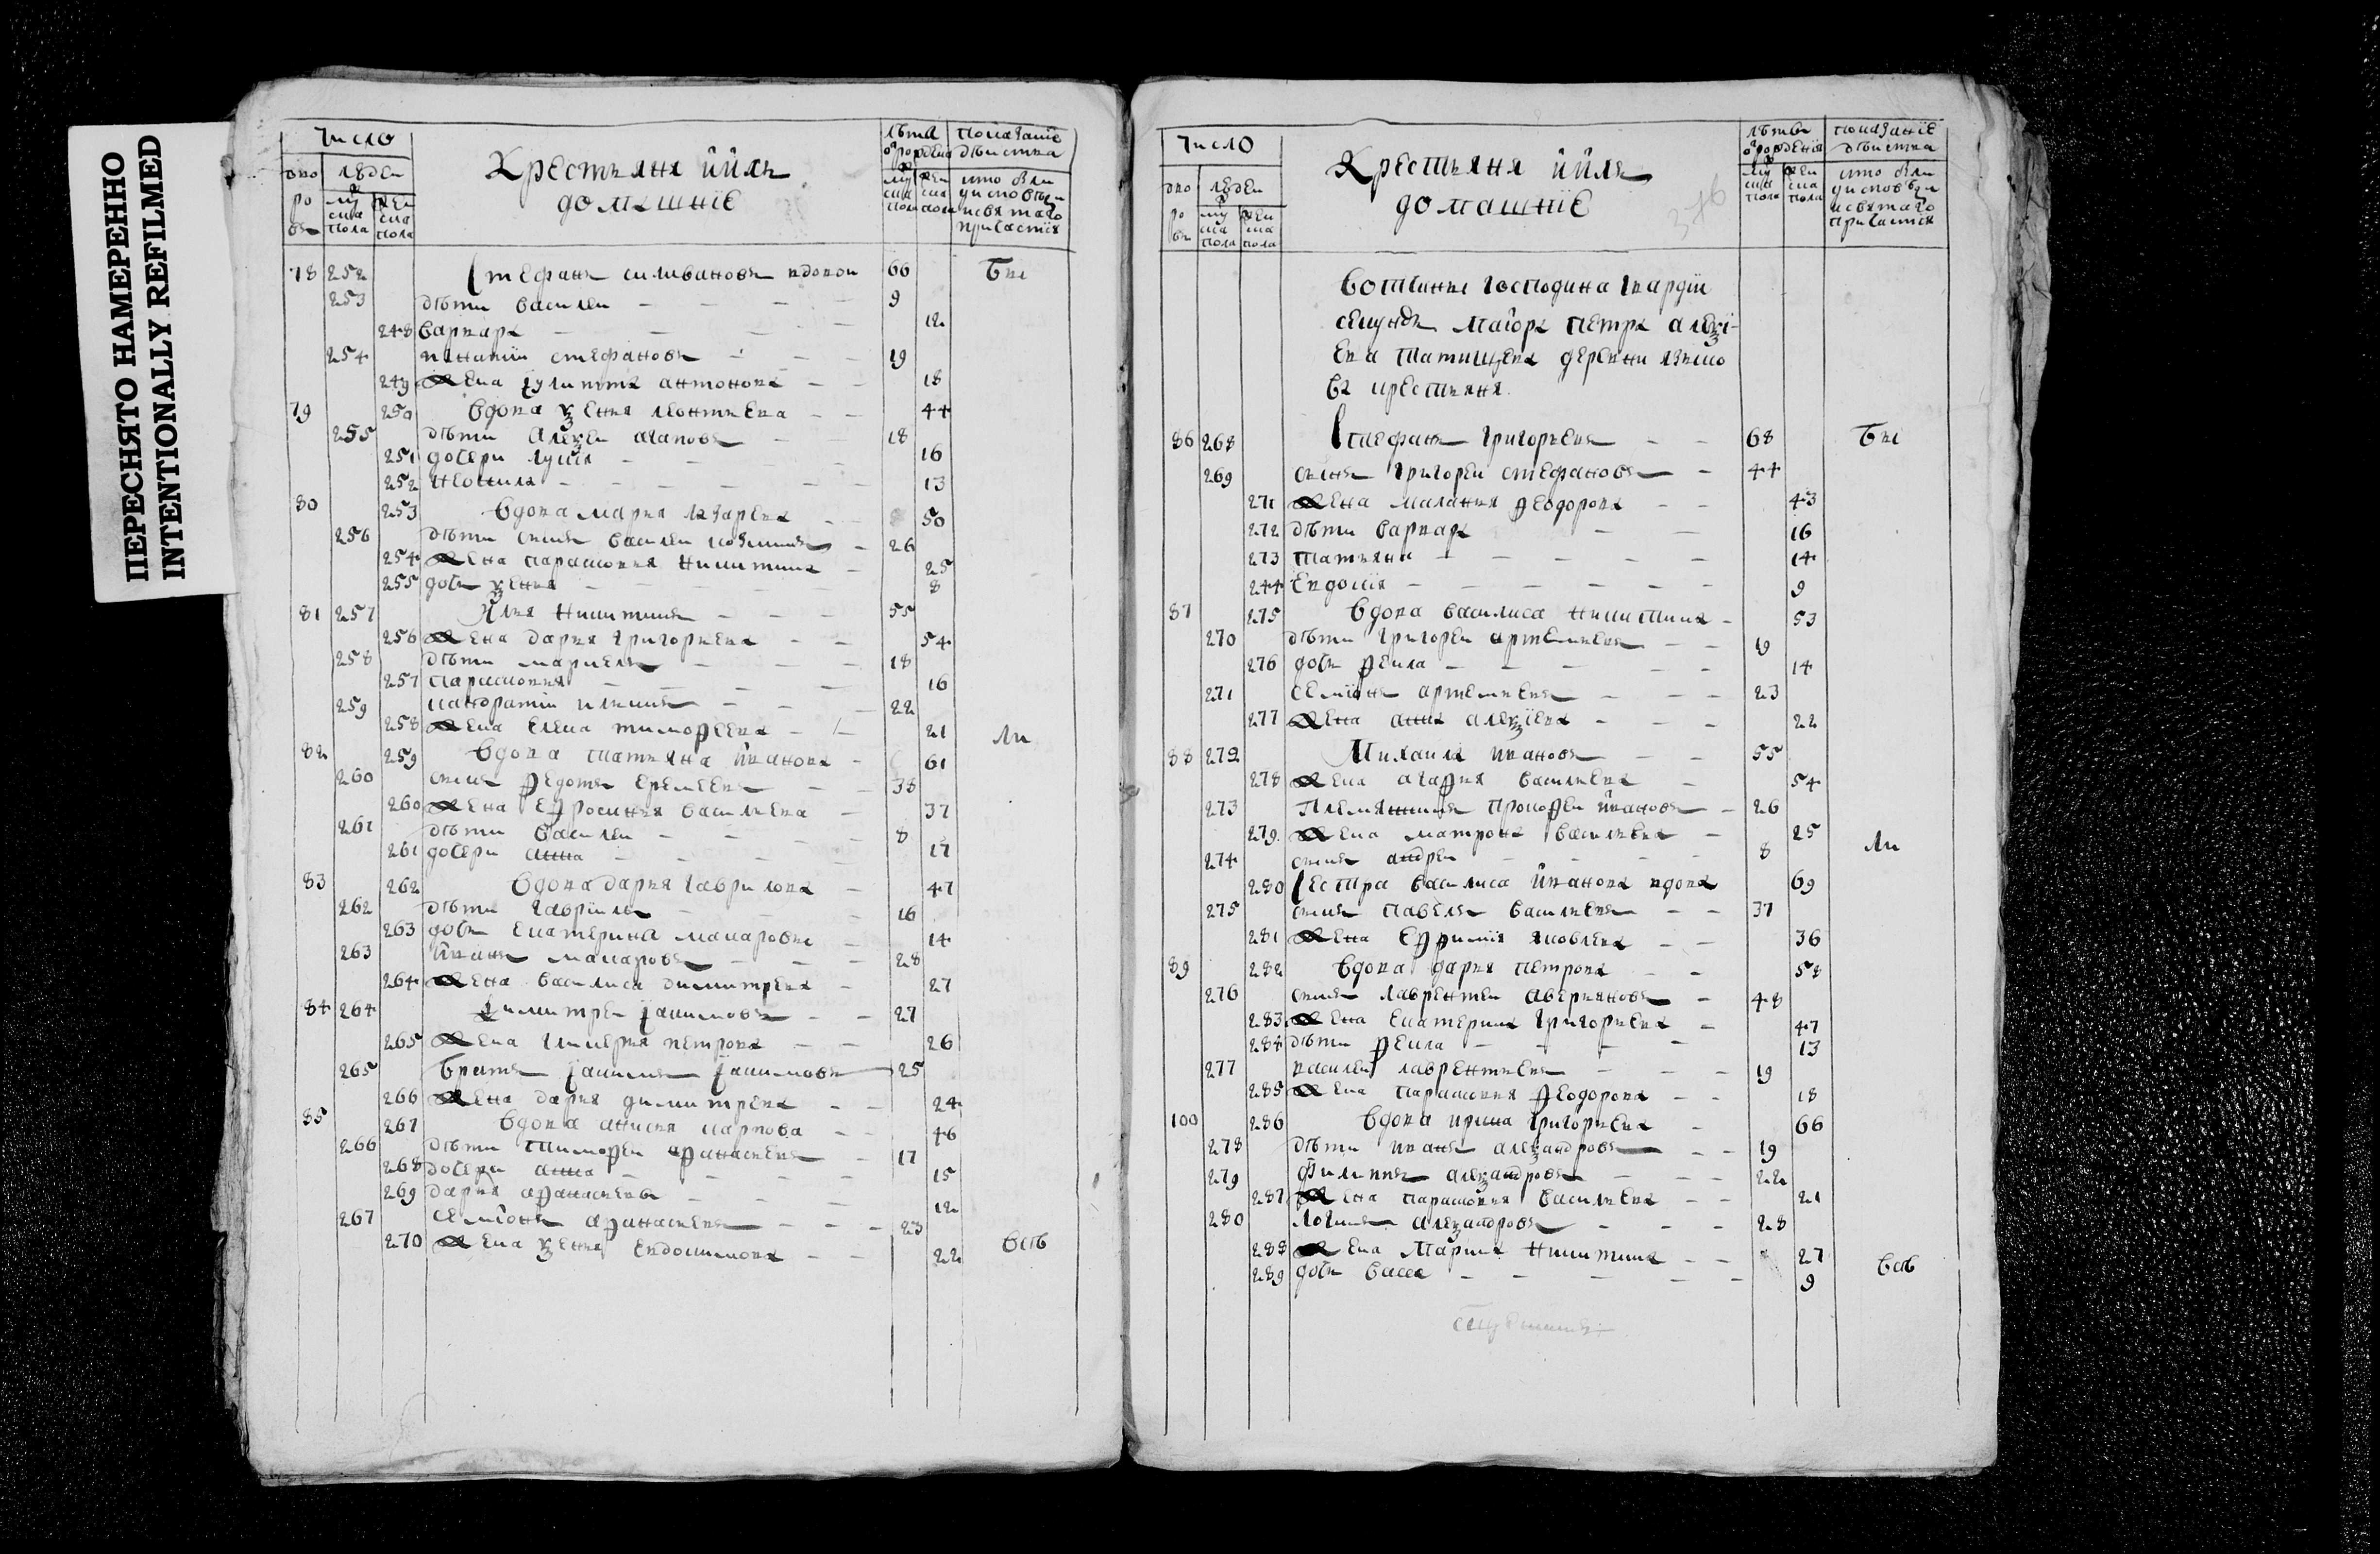 ПЕРЕСНЯТО НАМЕРЕННО
INTENTIONALLY REFILMED
Число
дво ро въ
людеи
муска пола
женска пола
Крестьяня ийхъ домашние
лѣта от рождения
муска пола
женска пола
показание действа кто былъ у исповѣди и святаго причастия
78 252 Стефанъ силивановъ вдовои 66 Бы
253 дѣти василеи 9
248 варвара 12
254 игнатіи стефановъ 19
249 жена улитта антонова 18
79 250 вдова ѯения леонтьева 44
255 дѣти алеѯеи агаповъ 18
251 дочери лукия 16
252 неонила 13
80 253 вдова марья лазарева 50
256 дѣти сынъ василеи козминъ 26
254 жена парасковья никитина 25
255 дочь ѯения 8
81 257 Илья никитинъ 55
256 жена дарья григорьева 54
258 дѣти маркелъ 18
257 парасковья 16
259 кандратіи ильинъ 22
258 жена елена тимоѳеева 21
ли
82 259 вдова татьяна иванова 61
260 сынъ ѳедотъ еремеевъ 38
260 жена еѳросинья васильева 37
261 дѣти василеи 8
261 дочери анна 17
83 262 вдова дарья гаврилова 47
262 дѣти гаврила 16
263 дочь екатерина макаровы 14
263 иванъ макаровъ 28
264 жена василиса димитрева 27
84 264 димитреи иакимовъ 27
265 жена гликерья петрова 26
265 братъ иакимъ иакимовъ 25
266 жена дарья димитрева 24
85 267 вдова анисья карпова 46
266 дѣти тимоѳеи аѳанасьевъ 17
268 дочери анна 15
269 дарья аѳанасьевы 12
267 семіонъ аѳанасьевъ 23
270 жена ѯения евдокимова 22
всѣ
Число
дво ро въ
людеи
муска пола
женска пола
Крестьяня ийхъ домашніе
376
лѣта от рождения
муска пола
женска пола
показаніе действа кто былъ у исповѣди и святаго причастия
вотчины господина гвардіи
секундъ маіора петра алеѯі-
ева татищева деревни
ва крестьяня
86 268 Стефанъ григорьевъ 68 Бы
269 сынъ григореи стефановъ 44
271 жена маланья ѳеодорова 43
272 дѣти варвара 16
273 татьяна 14
244 евдокія 9
87 275 вдова василиса никитина 53
270 дѣти григореи артемьевъ 19
276 дочь ѳекла 14
271 семіонъ артемьевъ 23
277 жена анна алеѯіева 22
88 272 Михаила ивановъ 55
278 жена агаѳья васильева 54
273 племянникъ прокоѳеи ивановъ 26
279 жена матрона васильева 25
274 сынъ андреи 8
ли
280 сестра василиса иванова вдова 69
275 сынъ павелъ васильевъ 37
281 жена еѳимія яковлева 36
89 282 вдова дарья петрова 58
276 сынъ лаврентеи аверьяновъ 48
283 жена екатерина григорьева 47
284 дѣти ѳекла 13
277 василеи лаврентьевъ 19
285 жена парасковья ѳеодорова 18
100 286 вдова ирина григорьева 66
278 дѣти иванъ алеѯандровъ 19
279 филиппъ алеѯандровъ 22
287 жена парасковья васильева 21
280 логинъ алеѯандровъ 28
288 жена марина никитина 27
289 дочь васса 9
всѣ